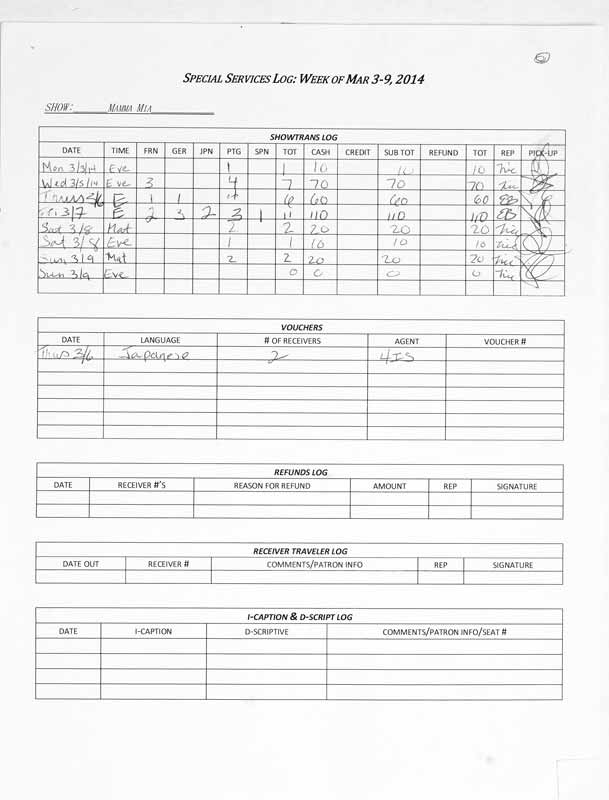 SPECIAL SERVICES LOG: WEEK OF MAR 3-9, 2014
SHOW: MAMMA MIA
SHOWTRANS LOG
DATE TIME FRN GER JPN PTG SPN TOT CASH CREDIT SUB TOT REFUND TOT REP PICK-UP
Mon 3/3/14 Eve 1 1 10 10 10
Wed 3/5/14 Eve 3 4 7 70 70 70
Thurs 3/6 E 1 1 4 6 60 60 60 EB
Fri 3/7 E 2 3 2 3 1 11 110 110 110 EB
Sat 3/8 Mat 2 2 20 20 20
Sat 3/8 Eve 1 1 10 10 10
Sun 3/9 Mat 2 2 20 20 20
Sun 3/9 Eve 0 0 0 0
VOUCHERS
DATE LANGUAGE # OF RECEIVERS AGENT VOUCHER #
Thurs 3/6 Japanese 2 4IS
REFUNDS LOG
DATE RECEIVER #'S REASON FOR REFUND AMOUNT REP SIGNATURE
RECEIVER TRAVELER LOG
DATE OUT RECEIVER # COMMENTS/PATRON INFO REP SIGNATURE
I-CAPTION & D-SCRIPT LOG
DATE I-CAPTION D-SCRIPTIVE COMMENTS/PATRON INFO/SEAT #